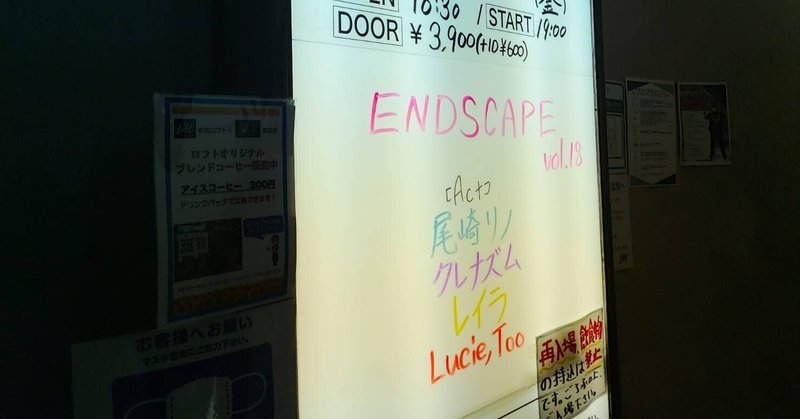 (金)
OPEN 18:30 / START 19:00
DOOR ¥3,900(+1D¥600)
ENDSCAPE
vol.18
[Act]
尾崎リノ
クレナズム
レイラ
Lucie,Too
再入場、飲食物
の持込は禁止
です。
ロフトオリジナル
ブレンドコーヒー販売中
アイスコーヒー 300円
ドリンクバッチで交換できます!
お客様へお願い
マスク着用にご協力下さい。